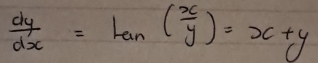 dy/dx = tan (x/y) = x + y